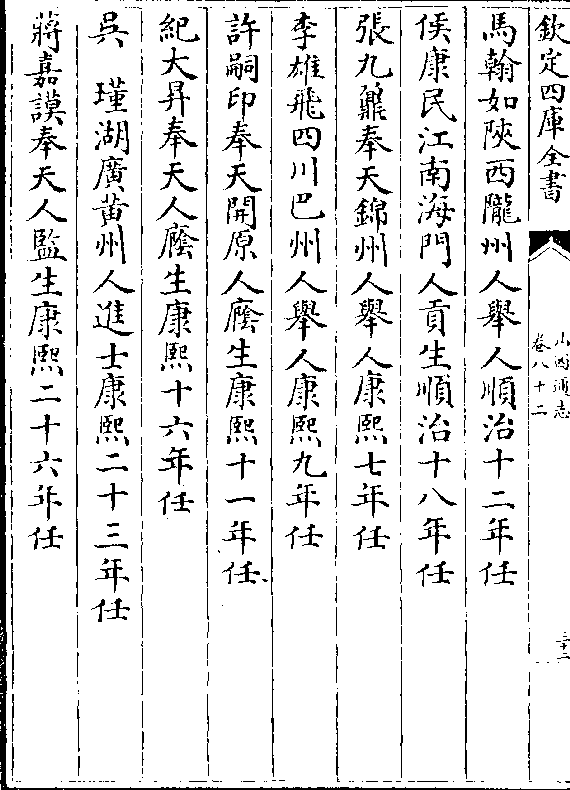 欽定四庫全書
山西通志
卷八十二
三十二
馬翰如陜西隴州人舉人順治十二年任
侯康民江南海門人貢生順治十八年任
張九鵬奉天錦州人舉人康熙七年任
李雄飛四川巴州人舉人康熙九年任
許嗣印奉天開原人廕生康熙十一年任
紀大昇奉天人廕生康熙十六年任
吳 瑾湖廣黃州人進士康熙二十三年任
蔣嘉謨奉天人監生康熙二十六年任